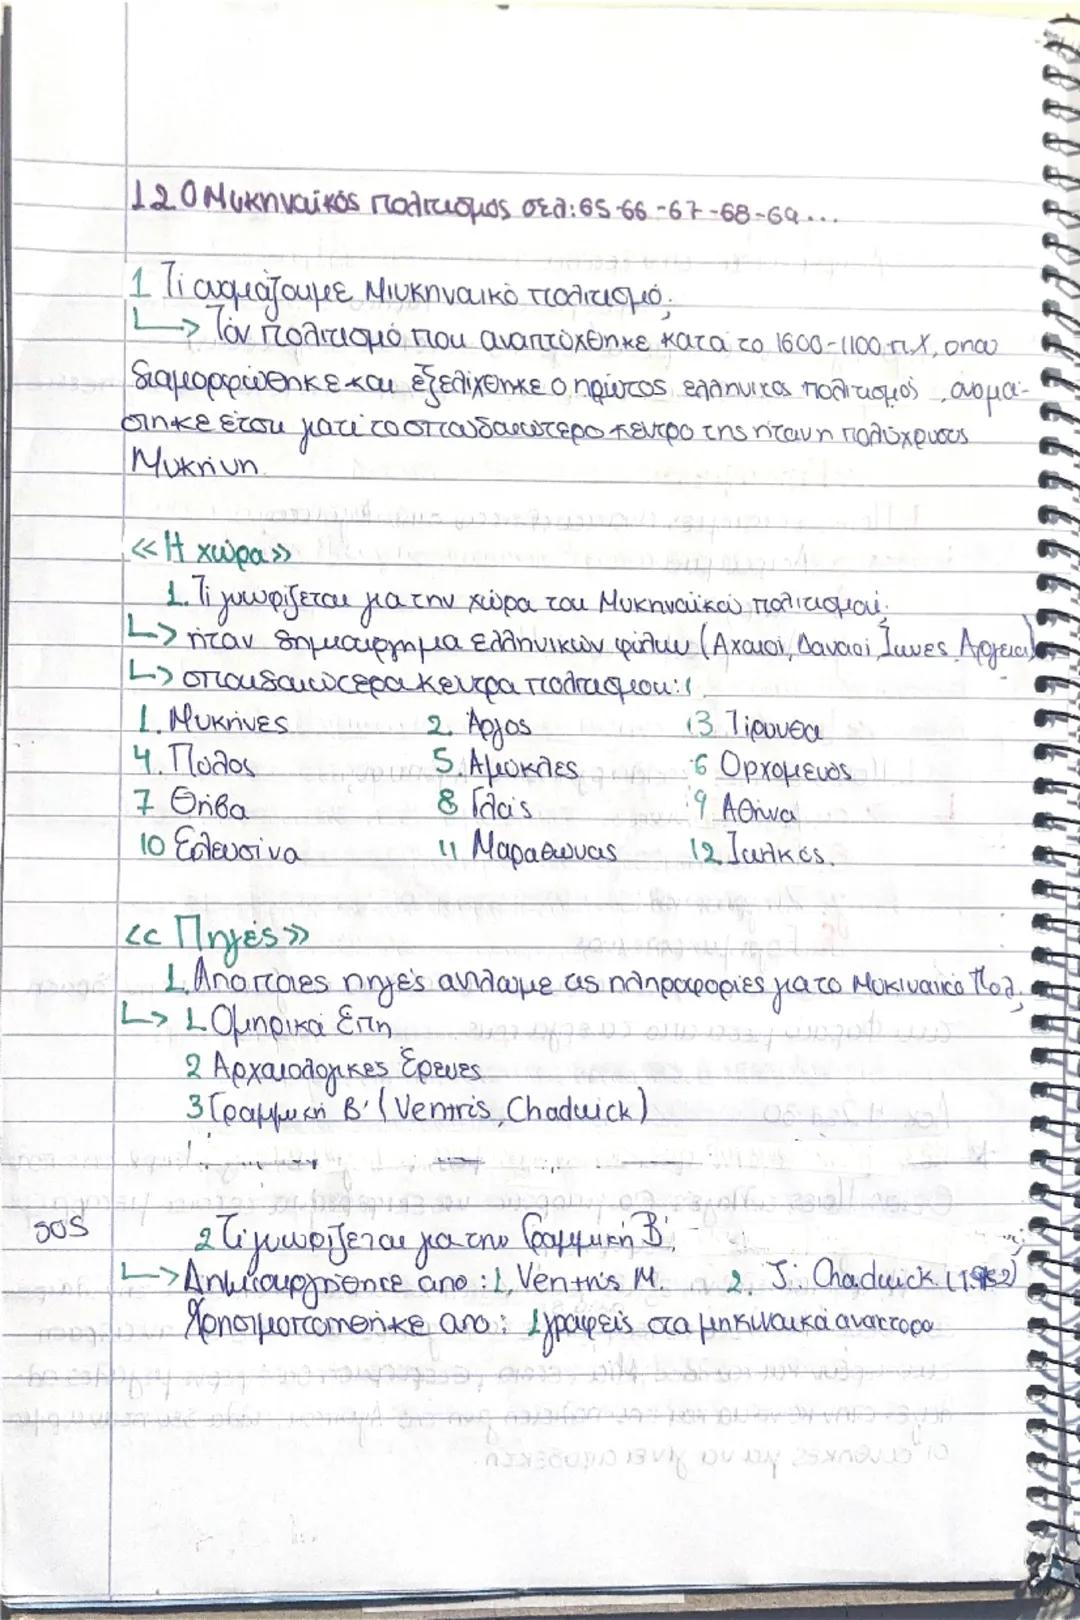 12 Ο Μυκηναϊκός πολιτισμός σελ: 65-66-67-68-69...
1 Τί ονομάζουμε Μιυκηναικό πολιτισμό;
↳ Τόν πολιτισμό που αναπτύχθηκε κατά το 1600-1100 π.Χ, οπου
διαμορφώθηκε και εξελίχθηκε ο πρώτος ελληνικος πολιτισμός, ονομά-
στηκε έτσι γιατί το σπουδαιότερο κέντρο της ήταν η πολύχρυσος
Μυκήνη.
«Η χώρα»
1. Τι γνωρίζεται για την χώρα του Μυκηναϊκού πολιτισμού;
↳ ήταν δημιούργημα ελληνικών φύλων (Αχαιοί, Δαναοί, Ίωνες, Αργείοι)
↳ σπουδαιότερα κέντρα πολιτισμου:
1. Μυκήνες 2. Άργος 3 Τίρυνθα
4. Πύλος 5. Αμύκλες 6 Ορχομενός
7 Θήβα 8 Γλάς 9 Αθήνα
10 Ελευσίνα 11 Μαραθώνας 12 Ιωλκός.
«Πηγές»
1. Από ποιες πηγές αντλούμε τις πληροφορίες για το Μυκιναικό Πολ.
↳ 1. Ομηρικά Έπη
2 Αρχαιολογικές Έρευνες
3 Γραμμική Β' (Ventris, Chadwick)
SOS 2 Τί γνωρίζεται για την Γραμμική Β';
↳ Δημιουργήθηκε απο: 1. Ventris M. 2. J. Chadwick (1952)
Χρησιμοποιήθηκε απο: 1 γραφείς στα μηκιναικά ανακτορα